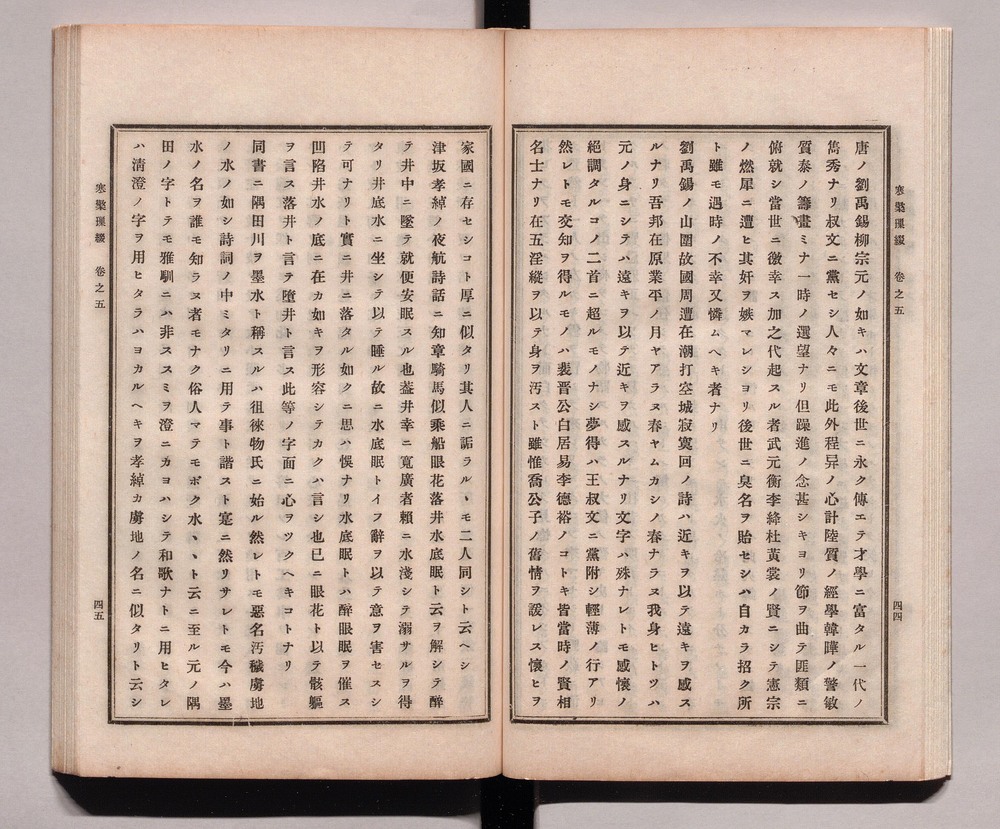 寒檠璅綴　卷之五
唐ノ劉禹錫柳宗元ノ如キハ文章後世ニ永ク傳エテ才學ニ富タル一代ノ
雋秀ナリ叔文ニ黨セシ人々ニモ此外程异ノ心計陸質ノ經學韓曄ノ警敏
質泰ノ籌畫ミナ一時ノ選望ナリ但躁進ノ念甚シキヨリ節ヲ曲テ匪類ニ
俯就シ當世ニ徼幸ス加之代起スル者武元衡李絳杜黃裳ノ賢ニシテ憲宗
ノ燃犀ニ遭ヒ其奸ヲ嫉マレシヨリ後世ニ臭名ヲ貽セシハ自カラ招ク所
ト雖モ遇時ノ不幸又憐ムヘキ者ナリ
劉禹錫ノ山圍故國周遭在潮打空城寂寞回ノ詩ハ近キヲ以テ遠キヲ感ス
ルナリ吾邦在原業平ノ月ヤアラヌ春ヤムカシノ春ナラヌ我身ヒトツハ
元ノ身ニシテハ遠キヲ以テ近キヲ感スルナリ文字ハ殊ナレトモ感懷ノ
絕調タルコノ二首ニ超ルモノナシ夢得ハ王叔文ニ黨附シ輕薄ノ行アリ
然レトモ交知ヲ得ルモノハ裴晉公白居易李德裕ノコトキ皆當時ノ賢相
名士ナリ在五淫縱ヲ以テ身ヲ汚スト雖惟喬公子ノ舊情ヲ諼レス懷ヒヲ
四四
寒檠璅綴　卷之五
家國ニ存セシコト厚ニ似タリ其人ニ詬ラルヽモ二人同シト云ヘシ
津坂孝綽ノ夜航詩話ニ知章騎馬似乘船眼花落井水底眠ト云ヲ解シテ醉
テ井中ニ墜テ就便安眠スル也蓋井幸ニ寬廣者賴ニ水淺シテ溺サルヲ得
タリ井底水ニ坐シテ以テ睡ル故ニ水底眠トイフ辭ヲ以テ意ヲ害セスシ
テ可ナリト實ニ井ニ落タル如クニ思ハ悞ナリ水底眠トハ醉眼眠ヲ催ス
凹陷井水ノ底ニ在カ如キヲ形容シテカクハ言シ也已ニ眼花ト以テ骸軀
ヲ言ス落井ト言テ墮井ト言ス此等ノ字面ニ心ヲツクヘキコトナリ
同書ニ隅田川ヲ墨水ト稱スルハ徂徠物氏ニ始ル然レトモ惡名汚穢虜地
ノ水ノ如シ詩詞ノ中ミタリニ用テ事ト諧スト寔ニ然リサレトモ今ハ墨
水ノ名ヲ誰モ知ラヌ者モナク俗人マテモボク水ヽヽト云ニ至ル元ノ隅
田ノ字トテモ雅馴ニハ非ススミヲ澄ニカヨハシテ和歌ナトニ用ヒタレ
ハ淸澄ノ字ヲ用ヒタラハヨカルヘキヲ孝綽カ虜地ノ名ニ似タリト云シ
四五